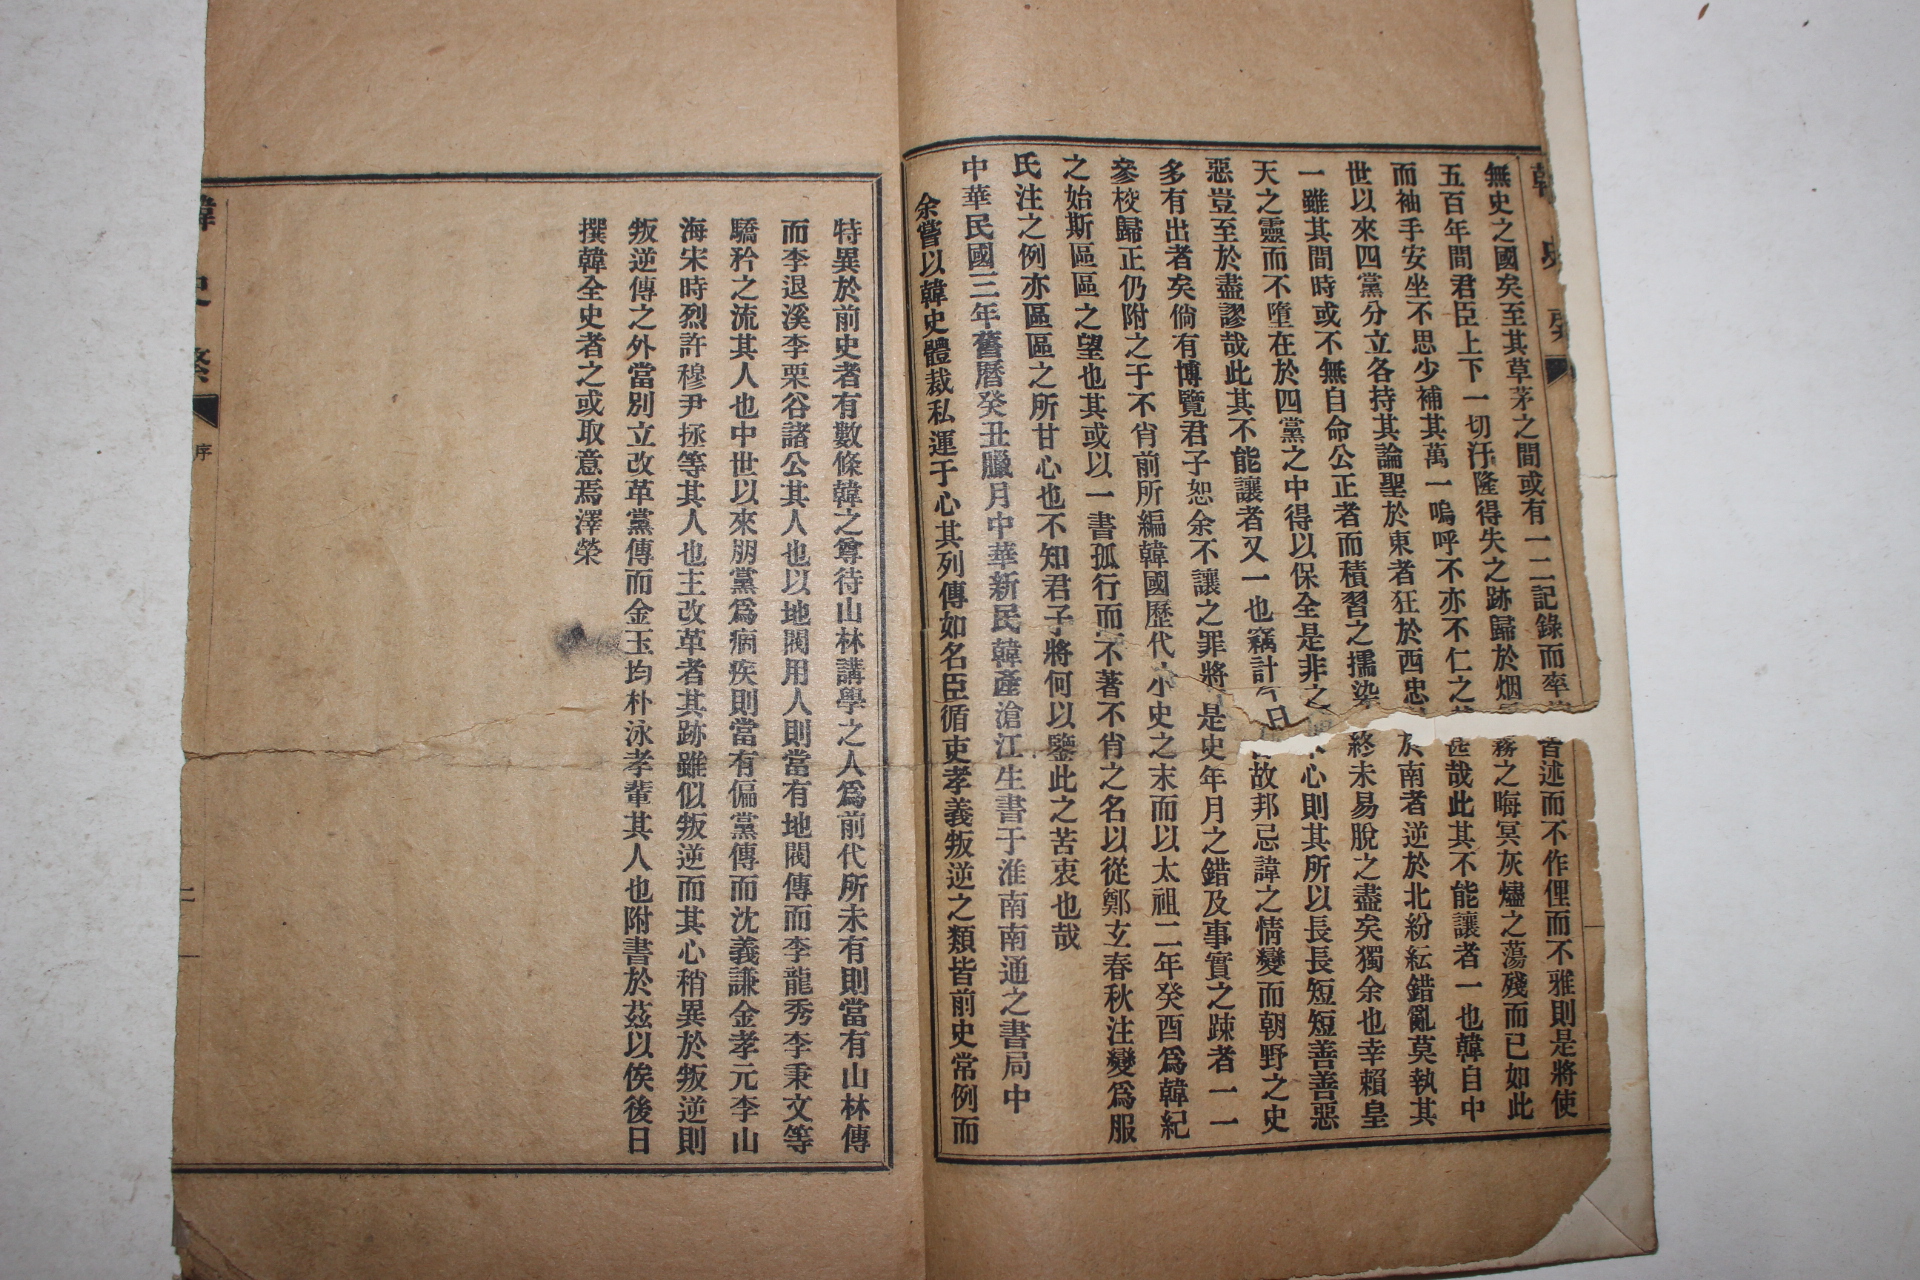 無史之國矣至其草茅之間或有一二記錄而率皆述而不作俚而不雅則是將使
五百年間君臣上下一切汙隆得失之跡歸於烟霧之晦冥灰燼之蕩殘而已如此
而袖手安坐不思少補其萬一嗚呼不亦不仁之甚哉此其不能讓者一也韓自中
世以來四黨分立各持其論聖於東者狂於西忠於南者逆於北紛紜錯亂莫執其
一雖其間時或不無自命公正者而積習之擩染終未易脫之盡矣獨余也幸賴皇
天之靈而不墮在於四黨之中得以保全是非之心則其所以長長短短善善惡
惡豈至於盡謬哉此其不能讓者又一也竊計日故邦忌諱之情變而朝野之史
多有出者矣倘有博覽君子恕余不讓之罪將是史年月之錯及事實之踈者一一
參校歸正仍附之于不肖前所編韓國歷代小史之末而以太祖二年癸酉爲韓紀
之始斯區區之望也其或以一書孤行而不著不肖之名以從鄭玄春秋注變爲服
氏注之例亦區區之所甘心也不知君子將何以鑒此之苦衷也哉
中華民國三年舊曆癸丑臘月中華新民韓產滄江生書于淮南南通之書局中
余嘗以韓史體裁私運于心其列傳如名臣循吏孝義叛逆之類皆前史常例而
特異於前史者有數條韓之尊待山林講學之人爲前代所未有則當有山林傳
而李退溪李栗谷諸公其人也以地閥用人則當有地閥傳而李龍秀李秉文等
驕矜之流其人也中世以來朋黨爲痼疾則當有偏黨傳而沈義謙金孝元李山
海宋時烈許穆尹拯等其人也主改革者其跡雖似叛逆而其心稍異於叛逆則
叛逆傳之外當別立改革黨傳而金玉均朴泳孝輩其人也附書於茲以俟後日
撰韓全史者之或取意焉澤榮
韓史綮
序
二